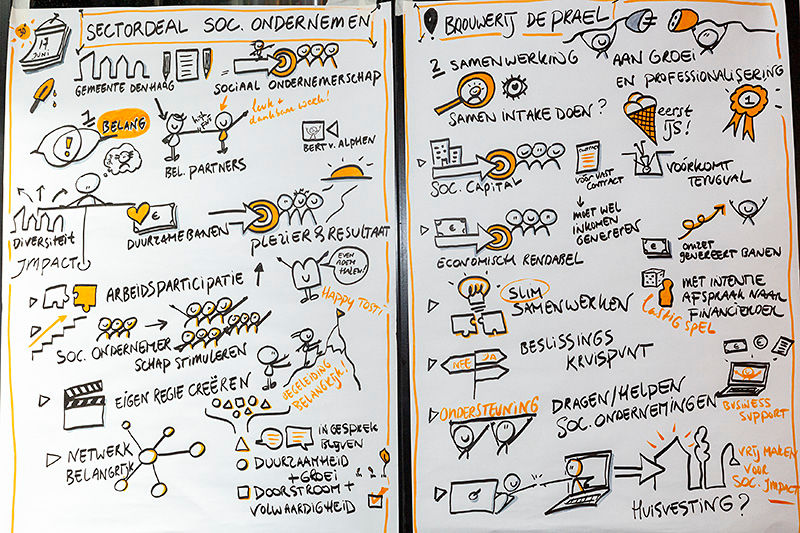 30
19
JUNI
SECTORDEAL SOC. ONDERNEMEN
GEMEENTE DEN HAAG
SOCIAAL ONDERNEMERSCHAP
1
BELANG
!
leuk +
dankbaar werk!
BEL. PARTNERS
BERT V. ALPHEN
DIVERSITEIT
IMPACT
€
DUURZAME BANEN
PLEZIER & RESULTAAT
ARBEIDSPARTICIPATIE
EVEN
ADEM
HALEN!
HAPPY TOSTI
SOC. ONDERNEMER
SCHAP STIMULEREN
EIGEN REGIE CREËREN
BEGELEIDING
BELANGRIJK!
NETWERK
BELANGRIJK
IN GESPREK
BLIJVEN
DUURZAAMHEID
+ GROEI
DOORSTROOM +
VOLWAARDIGHEID
BROUWERIJ DE PRAEL
2 SAMENWERKING
AAN GROEI
EN PROFESSIONALISERING
SAMEN INTAKE DOEN?
eerst
IJS!
1
SOC. CAPITAL
CONTRACT
VOOR VAST
CONTRACT
VOORKOMT
TERUGVAL
MOET WEL
INKOMEN
GENEREREN
€
ECONOMISCH RENDABEL
€
OMZET
GENEREERT BANEN
SLIM
SAMENWERKEN
MET INTENTIE
AFSPRAAK NAAR
FINANCIEDER
lastig
SPEL
NEE
JA
BESLISSINGS
KRUISPUNT
€
ONDERSTEUNING
DRAGEN/HELPEN
SOC. ONDERNEMINGEN
BUSINESS
SUPPORT
HUISVESTING?
VRIJ MAKEN
VOOR
SOC. IMPACT